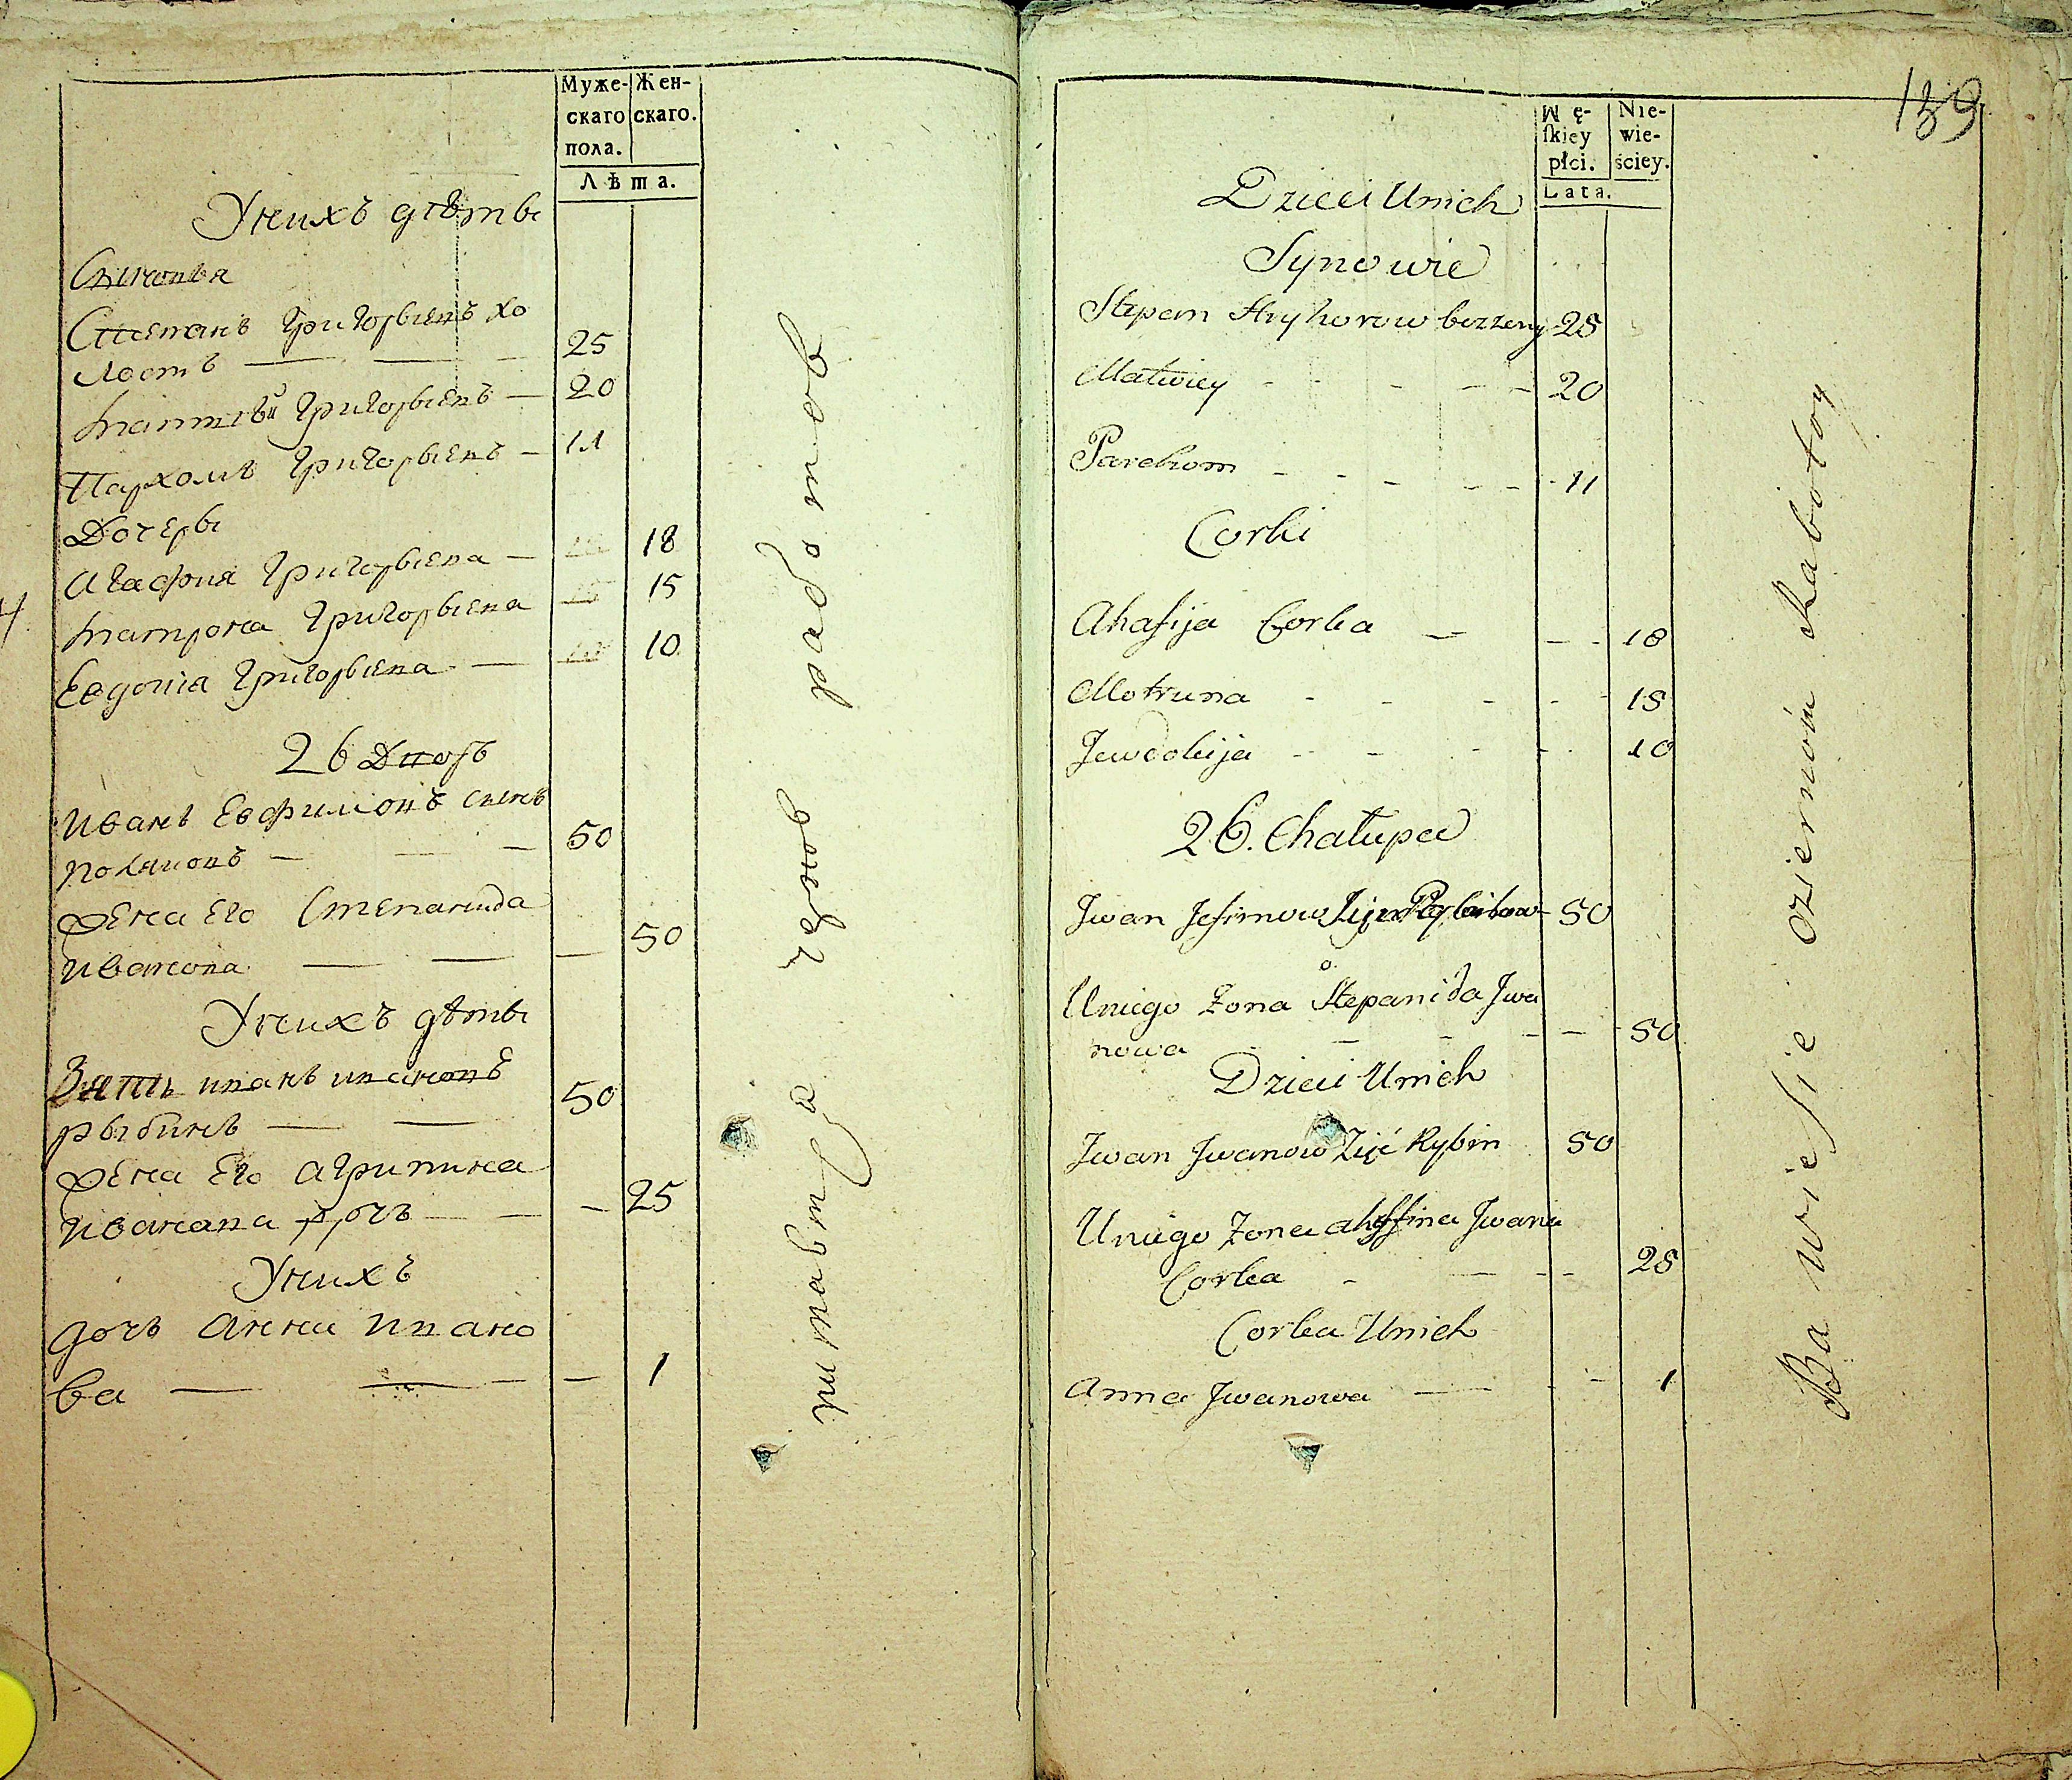 Муже-
скаго
пола.
Жен-
скаго.
Лѣта.
Унихъ дѣтѣ
Сыновья
Степанъ Григорьевъ хо
лостъ — — — 25
Матвѣй Григорьевъ — 20
Пархомъ Григорьевъ — 11
Дочеры
Агафия Григорьева — 18
Матрона Григорьева 15
Евдокия Григорьева — 10
26 Дворъ
Иванъ Евфимовъ сынъ
— — — 50
Жена Его Степанида
Иванова — — — 50
Унихъ дѣты
Зять иванъ ивановъ
рыбинъ — — 50
Жена Его Агрипина
Иванова дочь — — — 25
Унихъ
дочь Анна Ивано
ва — — — 1
работов
чернов
139
Mę-
skiey
płci.
Nie-
wie-
ściey.
Lata.
Dzieci Unich
Synowie
Stepan Hryhorow bezzenny 25
Matwiey - - - - - 20
Parchom - - - - - 11
Corki
Ahafija Corka - - - 18
Motruna - - - - - 15
Jewdokija - - - - 10
26. Chałupa
Jwan Jefimow 50
Uniego Żona Stepanida Jwa
nowa - - - - 50
Dzieci Unich
Jwan Jwanow Zięć Rybin 50
Uniego Żona Jwana
Corka - - - - 25
Corka Unich
Anna Jwanowa - - - 1
Rabotoy